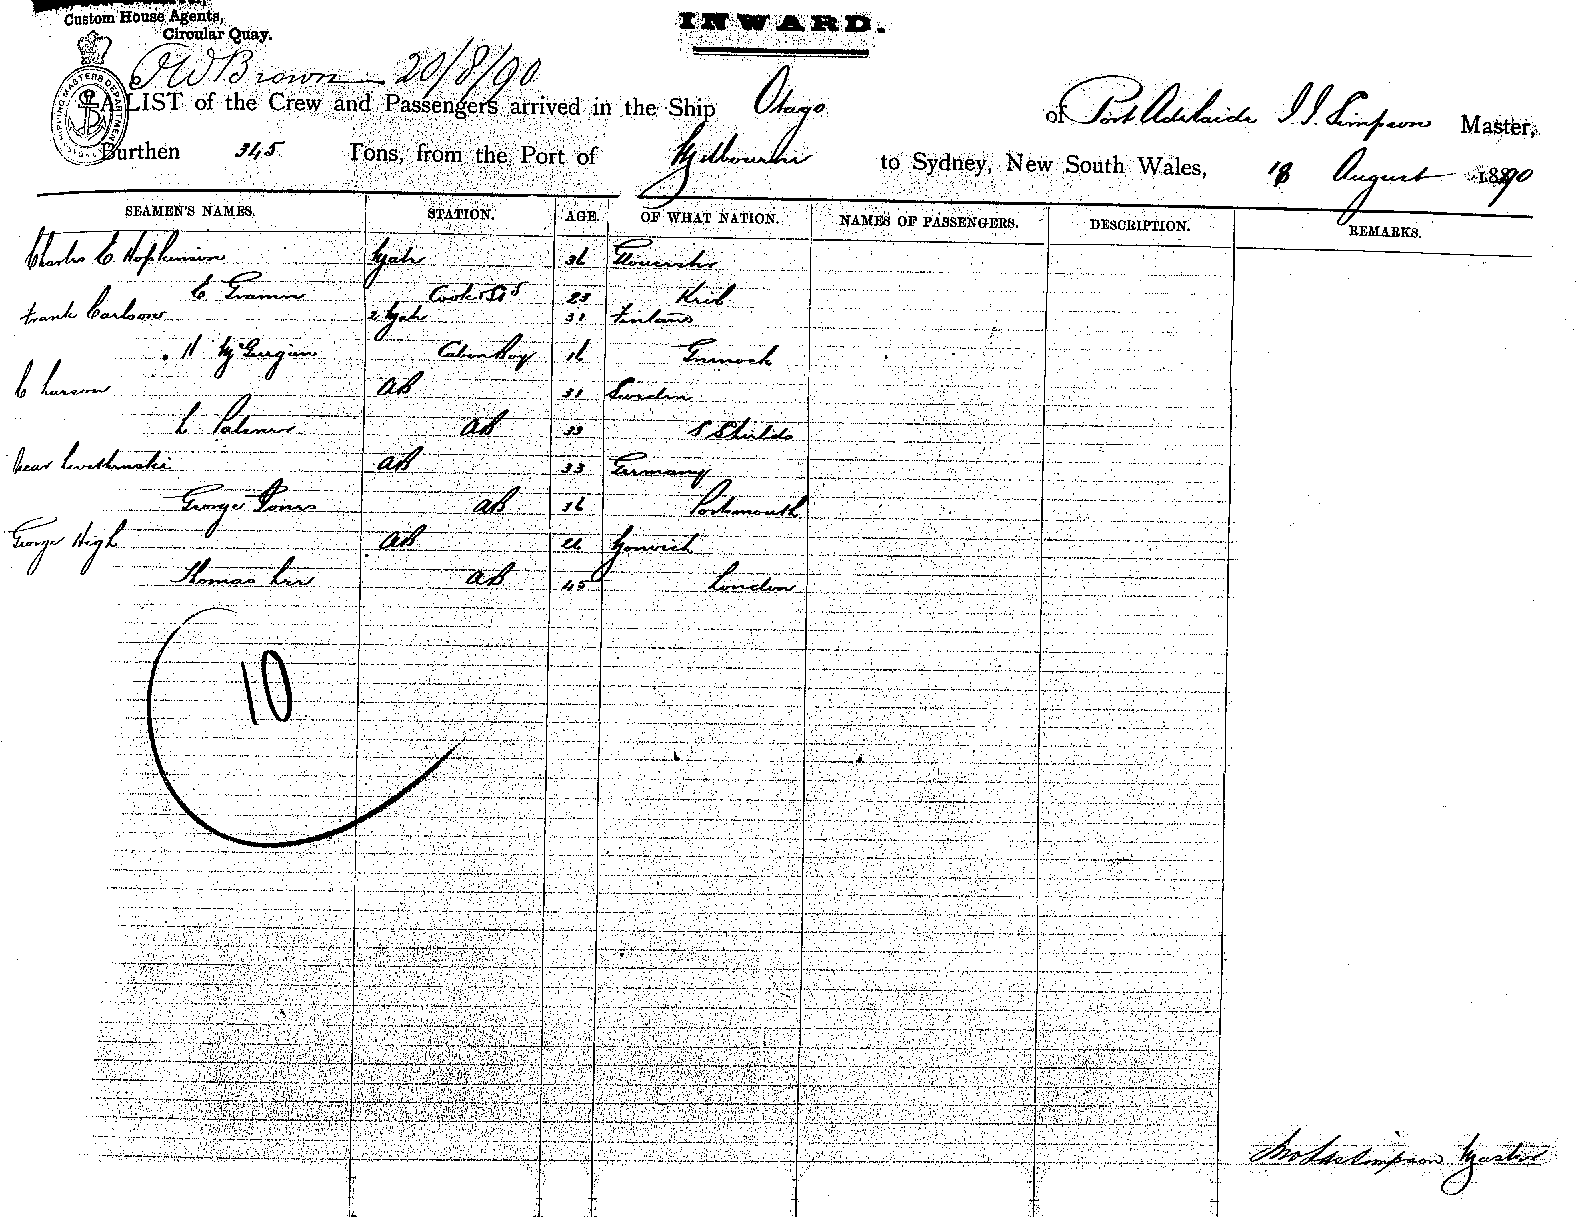 Custom House Agents,
Circular Quay.
INWARD.
Brown 20/8/90
A LIST of the Crew and Passengers arrived in the Ship Otago of Port Adelaide J. J. Simpson Master,
Burthen 345 Tons, from the Port of Melbourne to Sydney, New South Wales, 18 August 1890
SEAMEN'S NAMES. STATION. AGE. OF WHAT NATION. NAMES OF PASSENGERS. DESCRIPTION. REMARKS.
Charles E Hopkinson Mate 36 Gloucester
E Cook & Std 23 Kiel
Frank Carlson 2 Mate 31 Finland
Cabin Boy 16 Greenock
C Larson AB 31 Sweden
L Palmer AB 33 S Shields
AB 33 Germany
George Jones AB 36 Portsmouth
George High AB 26 Norwich
Thomas AB 45 London
10
Simpson Master